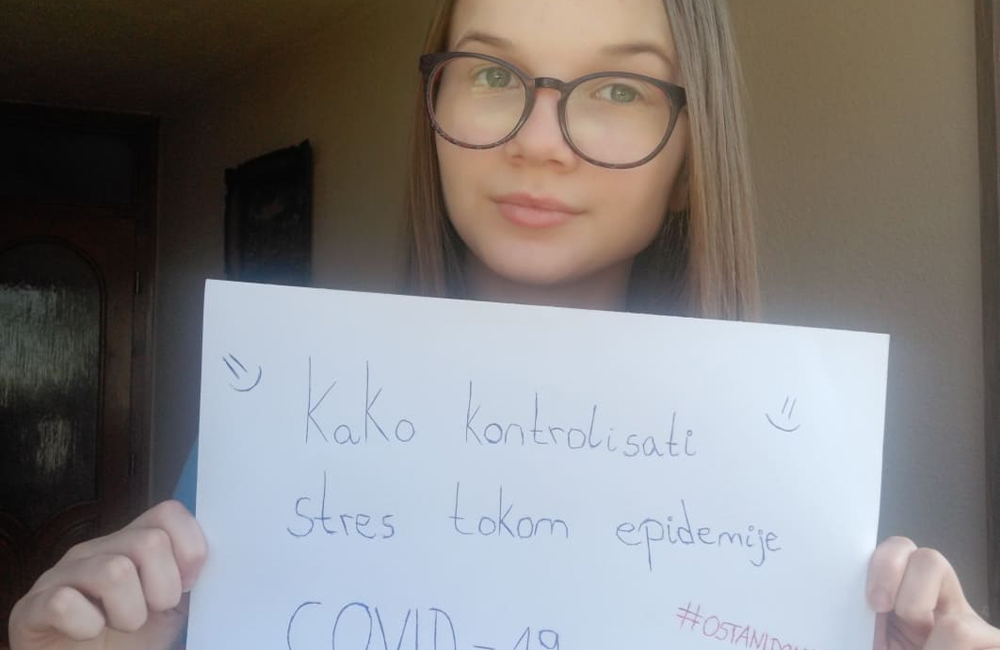 Kako kontrolisati
stres tokom epidemije
COVID-19